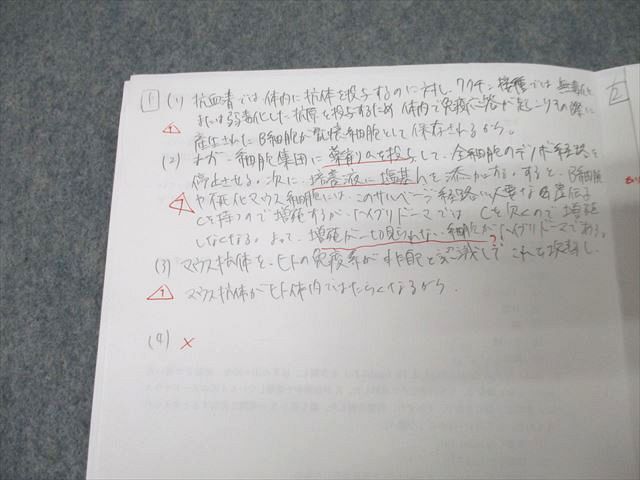 1 (1) 抗血清では体内に抗体を投与するのに対し、ワクチン接種では無毒化
または弱毒化した抗原を投与するため体内で免疫応答が起こりその際に
産生されたB細胞が記憶細胞として保存されるから。
(2) まず、細胞集団に薬剤Aを投与して、全細胞のデノボ経路を
停止させる。次に、培養液に塩基Bを添加する。すると、B細胞
や不死化マウス細胞には、このサルベージ経路に必要な遺伝子
Cを持つので増殖するが、ハイブリドーマではCを欠くので増殖
しなくなる。よって、増殖が一切見られない細胞がハイブリドーマである。
??
(3) マウス抗体を、ヒトの免疫系が非自己と認識してこれを攻撃し、
マウス抗体がヒト体内ではたらくなるから。
(4) ×
2